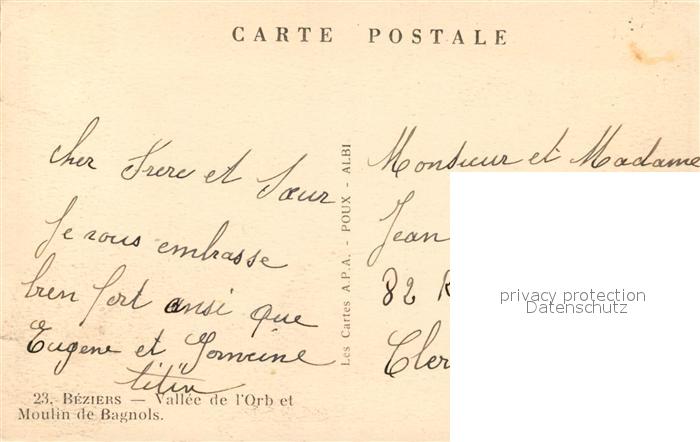 CARTE POSTALE
cher Frere et Sœur
Je vous embrasse
bien fort ansi que
Eugene et
titin
23. BÉZIERS — Vallée de l'Orb et
Moulin de Bagnols.
Les Cartes A.P.A. - POUX - ALBI
Monsieur et Madame
Jean
82 R
Cler
privacy protection
Datenschutz